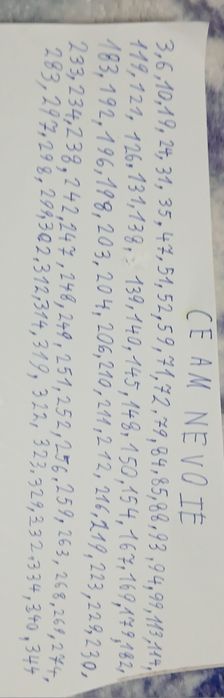 CE AM NEVOIE
3, 6, 10, 19, 24, 31, 35, 47, 51, 52, 59, 71, 72, 79, 84, 85, 88, 93, 94, 99, 113, 117,
119, 121, 126, 131, 138, 139, 140, 145, 148, 150, 154, 167, 169, 179, 182,
183, 192, 196, 198, 203, 204, 206, 210, 211, 212, 216, 219, 223, 229, 230,
233, 234, 238, 242, 247, 248, 249, 251, 252, 256, 259, 263, 268, 269, 274,
283, 297, 298, 299, 302, 312, 314, 319, 322, 323, 329, 332, 334, 340, 344